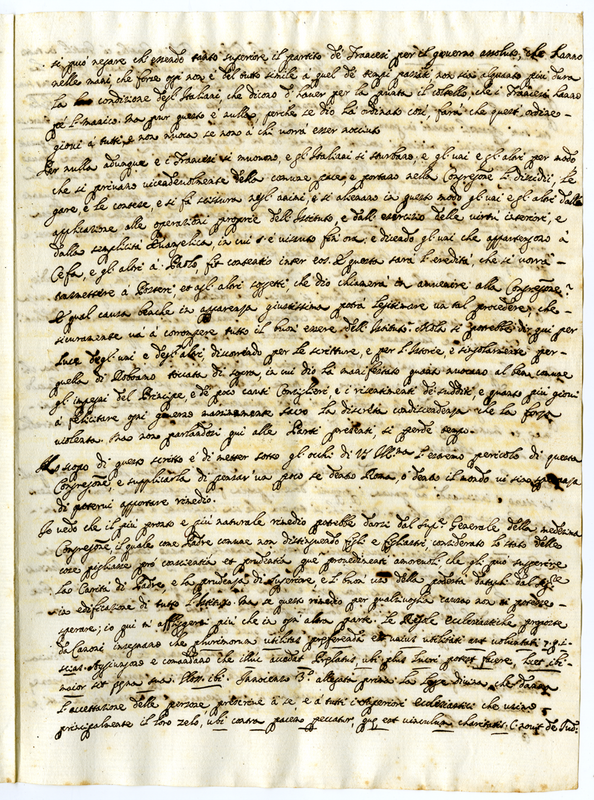 si può negare ch'essendo tanto superiore il partito de Francesi per il governo assoluto, che hanno
nelle mani, che forse ogi non è del tutto simile à quel de tempi passati non sia alquanto più dura
la condizione degl'Italiani, che dicono d'haver per la punta il coltello, che i Francesi hanno
pe'l manico. Ma pur questo è nulla, perche se Dio ha ordinato così, farà che quest'ordine
gioui à tutti, e non nuoca se non à chi vorrà esser nociuto
Per nulla adunque e i Francesi si muovono, e gl'Italiani si sturbano; e gl'uni e gl'altri per modo
che si privano vicendevolmente della comune pace, e portano nella Congregne i discidii, le
gare, e le contese, e si fà scissura negl'animi, e si alienano in questo modo gl'uni e gl'altri dalla
applicazione alle operazioni proprie dell'Istituto, e dall'esercizio delle virtù interiori, e
dalla semplicità Evangelica, in cui s'è vissuto fin ora, e dicendo gl'uni che appartengono à
Cefa, e gl'altri à Paolo, fit contentio inter eos. E questa sarà l'eredità, che si vorrà
trasmettere à Posteri et agl'altri soggetti, che Dio chiamerà in avvenire alla Congregne?
E qual causa benche in apparenza giustissima potrà legitimare un tal procedere, che
sicuramente và à corrompere tutto il buon essere dell'Istituto. Molto si potrebbe dir qui per
luce degl'uni e degl'altri, discorrendo per le scritture, e per l'Istorie, e singolarmente per
quella di Roboamo toccata di sopra, in cui Dio hà manifestato quanto nuocano al ben comune
gl'impegni del Principe, e de poco cauti Consiglieri e i risentimenti de sudditi, e quanto più giovi
à felicitare ogni governo la discreta condiscendenza che la forza
violenta. Ma non parlandosi qui alle Parti presenti, si perde tempo.
Lo scopo di questo scritto è di metter sotto gl'occhi di V. Illma l'estremo pericolo di questa
Congregne e supplicarla di pensar un poco se dentro Roma, o dentro il mondo vi sia
di potervi apportare rimedio.
Io vedo che il più pronto e più naturale rimedio potrebbe darsi dal Supre Generale della medesima
Congregne, il quale come Padre comune non distinguendo figli e figliastri, considerato lo stato delle
cose pigliasse prò conscientia et prudentia que' provedimenti amorevoli che gli può suggerire
la Carità di Padre, e la prudenza di Superiore, e'l buon uso della potestà datagli
in edificazione di tutto l'Istituto. Ma se questo rimedio per qualsivoglia cagione non si potesse
sperare; io qui m'affliggerei più che in ogn'altra parte. Le Regole Ecclesiastiche proposte
da Canoni insegnano che plurimorum utilitas preferenda est unius utilitati aut voluntati. 7. q. i.
scias. Aggiungono e comandano che illuc accedat Prelatus, ubi plus lucri potest facere, licet ibi
maior sit pena sua. Gloss. ibi. Innocenzo 3º allegata prima la legge divina, che danna
l'accettazione delle persone, prescrive à se, e à tutti i superiori Ecclesiastici che usino
principalmente il loro zelo, ubi contra pacem peccatur, quę est vinculum charitatis. C. novit de Jud: